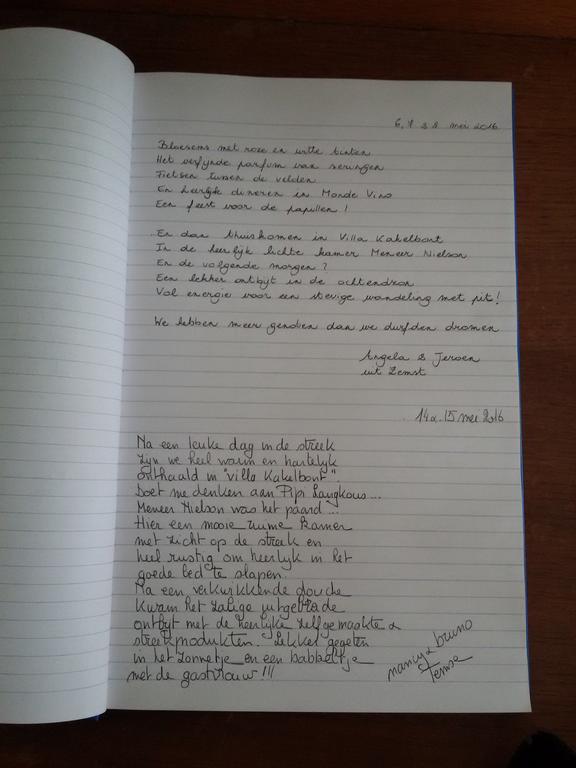 6, 7 & 8 mei 2016
Bloesems met roze en witte tinten
Het verfijnde parfum van seringen
Fietsen tussen de velden
En heerlijk dineren in Monde Vino
Een feest voor de papillen !
En dan thuiskomen in Villa Kakelbont
In de heerlijk lichte kamer Meneer Nielson
En de volgende morgen ?
Een lekker ontbijt in de ochtendzon
Vol energie voor een stevige wandeling met pit!
We hebben meer genoten dan we durfden dromen
Angela & Jeroen
uit Zemst
14 & 15 mei 2016
Na een leuke dag in de streek
zijn we heel warm en hartelijk
onthaald in "Villa Kakelbont".
Doet me denken aan Pipi Langkous ...
Meneer Nielson was het paard ...
Hier een mooie ruime kamer
met zicht op de streek en
heel rustig om heerlijk in het
goede bed te slapen.
Na een verkwikkende douche
kwam het zalige uitgebreide
ontbijt met de heerlijke zelfgemaakte &
streekprodukten. Lekker gegeten
in het zonnetje en een babbeltje
met de gastvrouw !!!
nancy & bruno
Temse